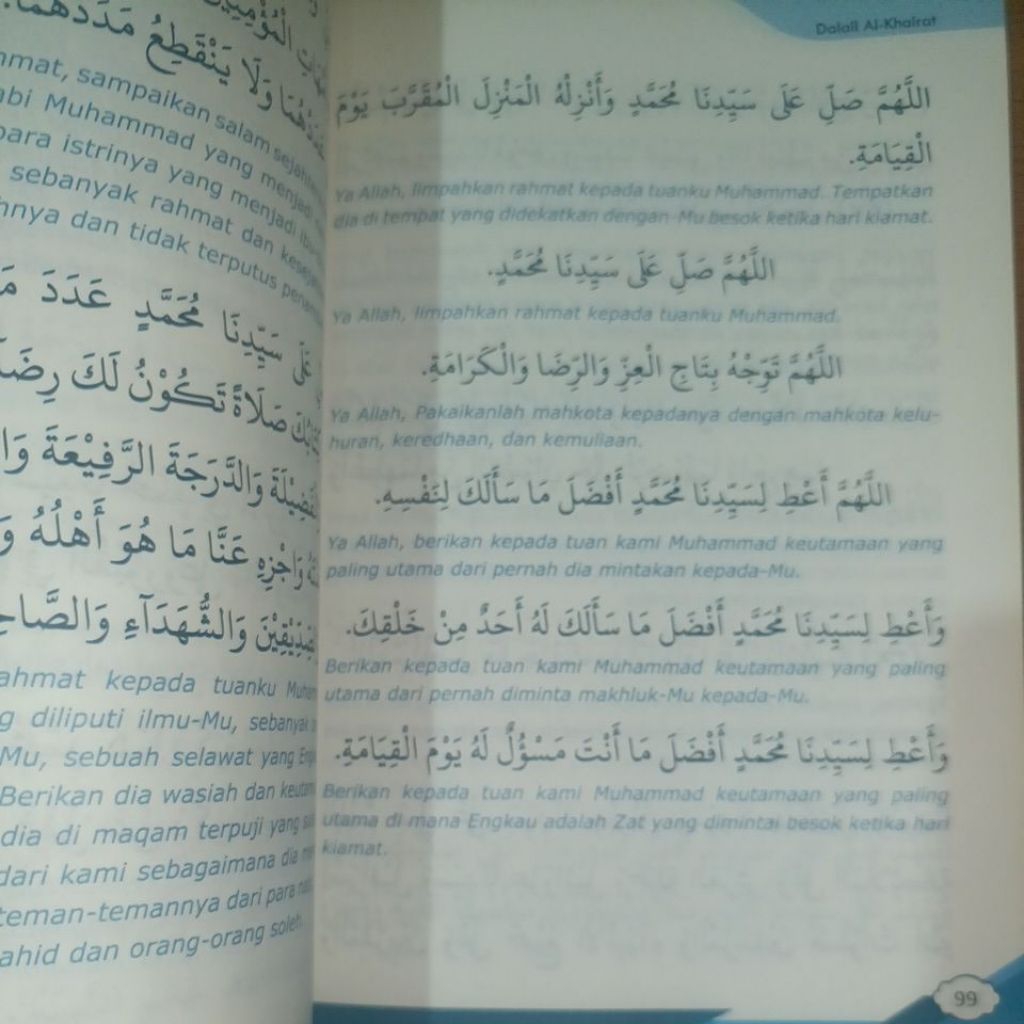 بَاتِ الْمُؤْمِنِيْنَ
وَلَا يَنْقَطِعُ مَدَدُهُمَا.
sampaikan salam
Muhammad yang
para istrinya yang menjadi
sebanyak rahmat dan
dan tidak terputus
عَلَى سَيِّدِنَا مُحَمَّدٍ عَدَدَ
صَلَاةً تَكُوْنُ لَكَ
وَالدَّرَجَةَ الرَّفِيْعَةَ
وَاجْزِهِ عَنَّا مَا هُوَ أَهْلُهُ
وَالشُّهَدَآءِ
kepada tuanku
diliputi ilmu-Mu, sebanyak
Mu, sebuah selawat yang
Berikan dia wasiah dan
dia di maqam terpuji yang
dari kami sebagaimana dia
teman-temannya dari para
dan orang-orang soleh.
Dalail Al-Khairat
اللَّهُمَّ صَلِّ عَلَى سَيِّدِنَا مُحَمَّدٍ وَأَنْزِلْهُ الْمَنْزِلَ الْمُقَرَّبَ يَوْمَ
الْقِيَامَةِ.
Ya Allah, limpahkan rahmat kepada tuanku Muhammad. Tempatkan
dia di tempat yang didekatkan dengan-Mu besok ketika hari kiamat.
اللَّهُمَّ صَلِّ عَلَى سَيِّدِنَا مُحَمَّدٍ.
Ya Allah, limpahkan rahmat kepada tuanku Muhammad.
اللَّهُمَّ تَوِّجْهُ بِتَاجِ الْعِزِّ وَالرِّضَا وَالْكَرَامَةِ.
Ya Allah, Pakaikanlah mahkota kepadanya dengan mahkota kelu-
huran, keredhaan, dan kemuliaan.
اللَّهُمَّ أَعْطِ لِسَيِّدِنَا مُحَمَّدٍ أَفْضَلَ مَا سَأَلَكَ لِنَفْسِهِ.
Ya Allah, berikan kepada tuan kami Muhammad keutamaan yang
paling utama dari pernah dia mintakan kepada-Mu.
وَأَعْطِ لِسَيِّدِنَا مُحَمَّدٍ أَفْضَلَ مَا سَأَلَكَ لَهُ أَحَدٌ مِنْ خَلْقِكَ.
Berikan kepada tuan kami Muhammad keutamaan yang paling
utama dari pernah diminta makhluk-Mu kepada-Mu.
وَأَعْطِ لِسَيِّدِنَا مُحَمَّدٍ أَفْضَلَ مَا أَنْتَ مَسْؤُلٌ لَهُ يَوْمَ الْقِيَامَةِ.
Berikan kepada tuan kami Muhammad keutamaan yang paling
utama di mana Engkau adalah Zat yang dimintai besok ketika hari
kiamat.
99